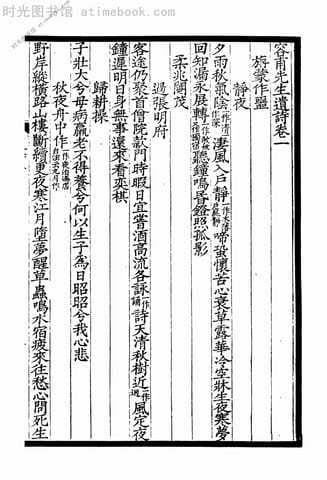 时光图书馆 - atimebook.com
容甫先生遺詩卷一
旃蒙作噩
靜夜
夕雨秋氣陰淒風入戶靜啼蛩懷苦心衰草露華冷空牀生夜寒夢
回知漏永展轉聽鐘鳴昏鐙照孤影
柔兆閹茂
過張明府
客途仍聚首僧院款門時暇日宜嘗酒高流各詠一作誦詩天清秋樹近一作迥風定夜
鐘遲明日身無事還來看奕棋
歸耕操
子壯大兮母病羸老不得養兮何以生子為日昭昭兮我心悲
秋夜舟中作
野岸縱橫路山樓斷續更夜寒江月墮夢醒草蟲鳴水宿疲來往愁心問死生